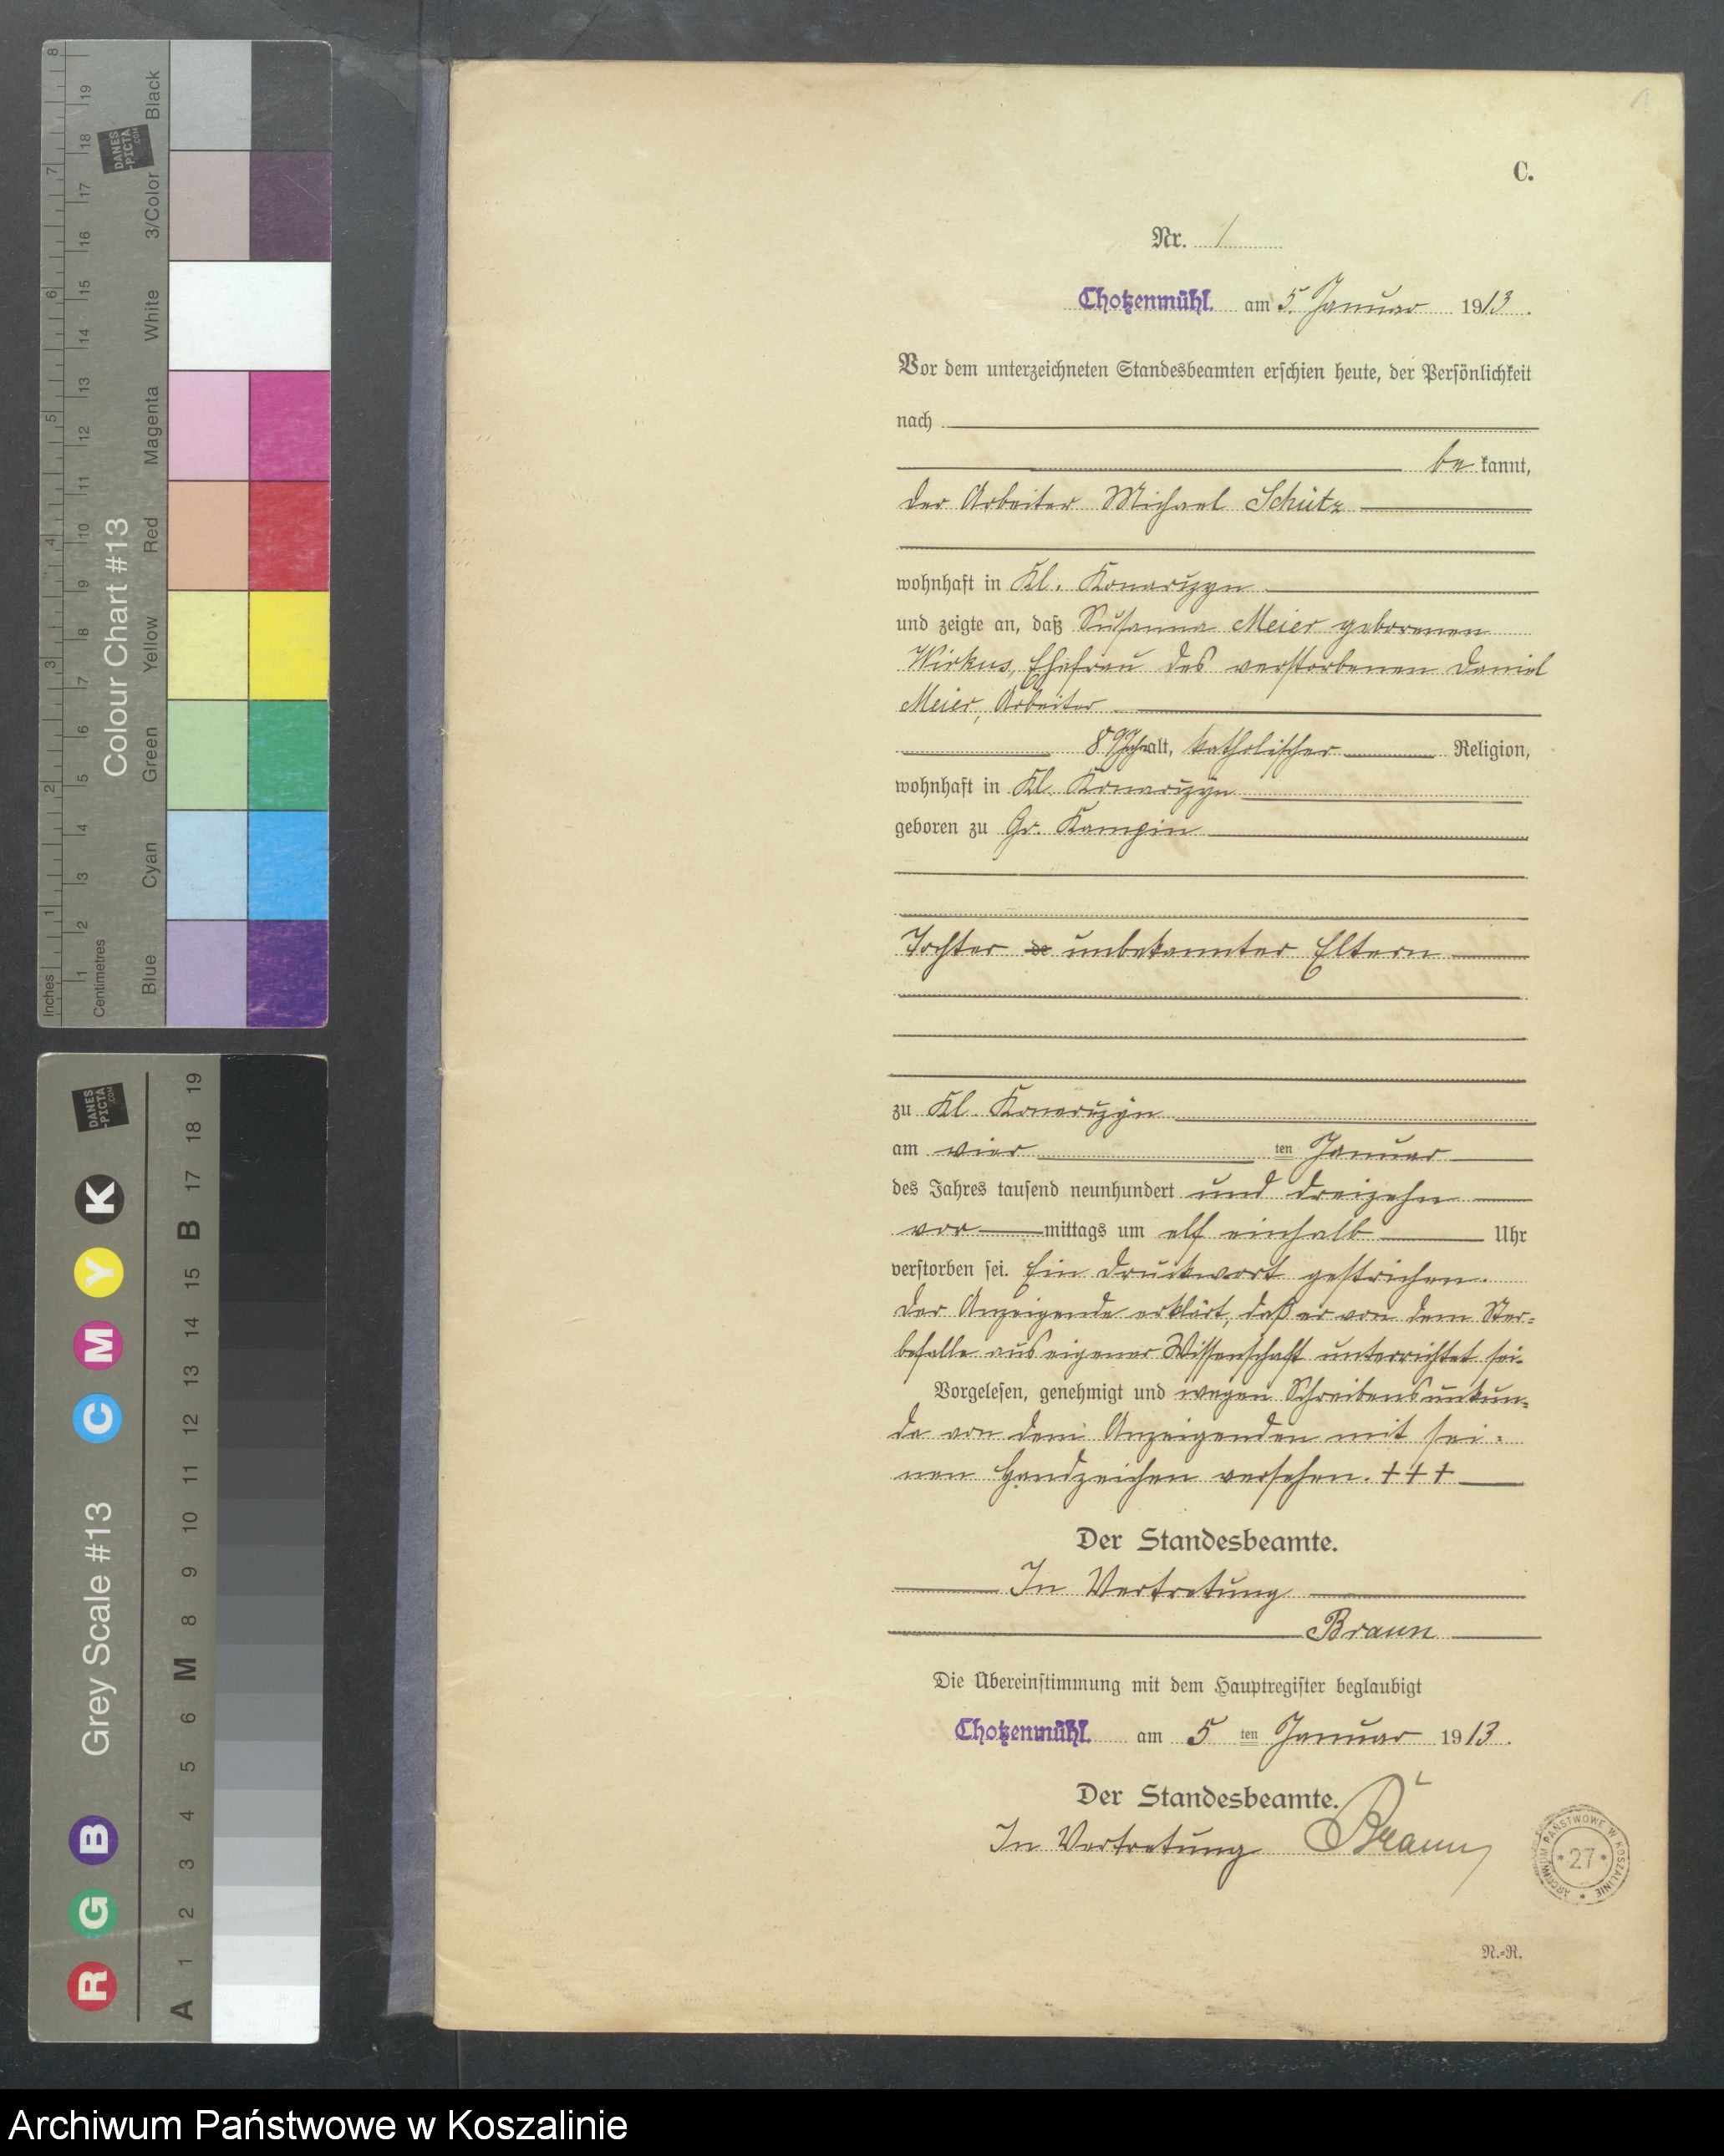 1
C.
Nr. 1
Chotzenmühl. am 5. Januar 1913.
Vor dem unterzeichneten Standesbeamten erschien heute, der Persönlichkeit
nach
be kannt,
der Arbeiter Michael Schütz
wohnhaft in Kl. Konarczyn
und zeigte an, daß Susanna Meier geborenen
Wirkus, Ehefrau des verstorbenen Daniel
Meier, Arbeiter
89 Jahr alt, katholischer Religion,
wohnhaft in Kl. Konarczyn
geboren zu Gr. Kampin
Tochter de unbekannter Eltern
zu Kl. Konarczyn
am vier ten Januar
des Jahres tausend neunhundert und dreizehn
vor mittags um elf einhalb Uhr
verstorben sei. Ein Druckwort gestrichen.
Der Anzeigende erklärt, daß er von dem Ster=
befalle aus eigener Wissenschaft unterrichtet sei.
Vorgelesen, genehmigt und wegen Schreibensunkun=
de von dem Anzeigenden mit sei=
nen Handzeichen versehen. +++
Der Standesbeamte.
In Vertretung
Braun
Die Übereinstimmung mit dem Hauptregister beglaubigt
Chotzenmühl. am 5 ten Januar 1913.
Der Standesbeamte.
In Vertretung Braun
ARCHIWUM PAŃSTWOWE W KOSZALINIE
* 27 *
N.-R.
Colour Chart #13
DANES
-PICTA
.COM
Inches 1 2 3 4 5 6 7 8
Centimetres 1 2 3 4 5 6 7 8 9 10 11 12 13 14 15 16 17 18 19
Blue Cyan Green Yellow Red Magenta White 3/Color Black
Grey Scale #13
DANES
-PICTA
.COM
R G B C M Y K
A 1 2 3 4 5 6 M 8 9 10 11 12 13 14 15 B 17 18 19
Archiwum Państwowe w Koszalinie